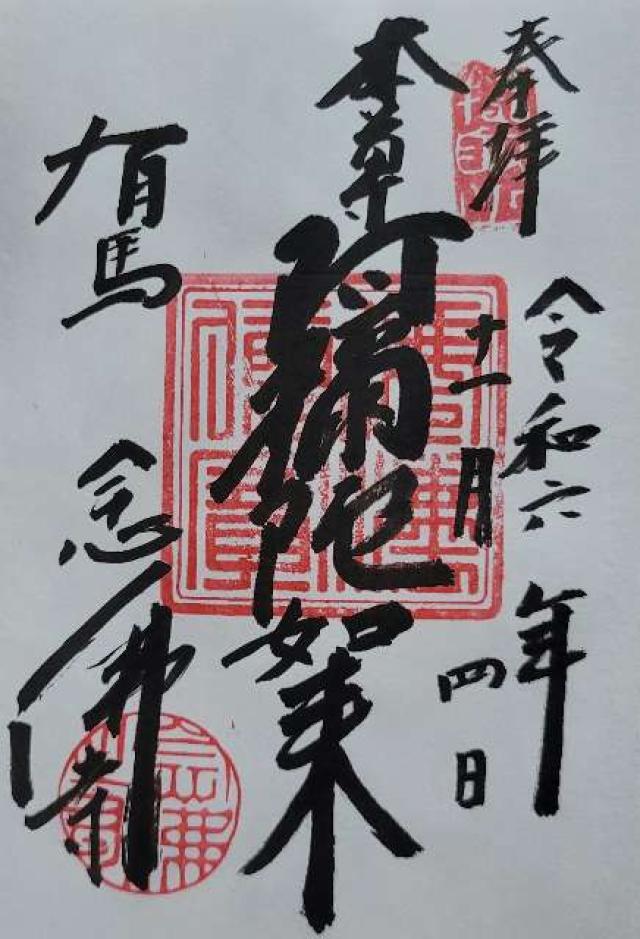 奉拝
令和六年
十一月四日
本尊
阿彌陀如来
有馬
念佛寺